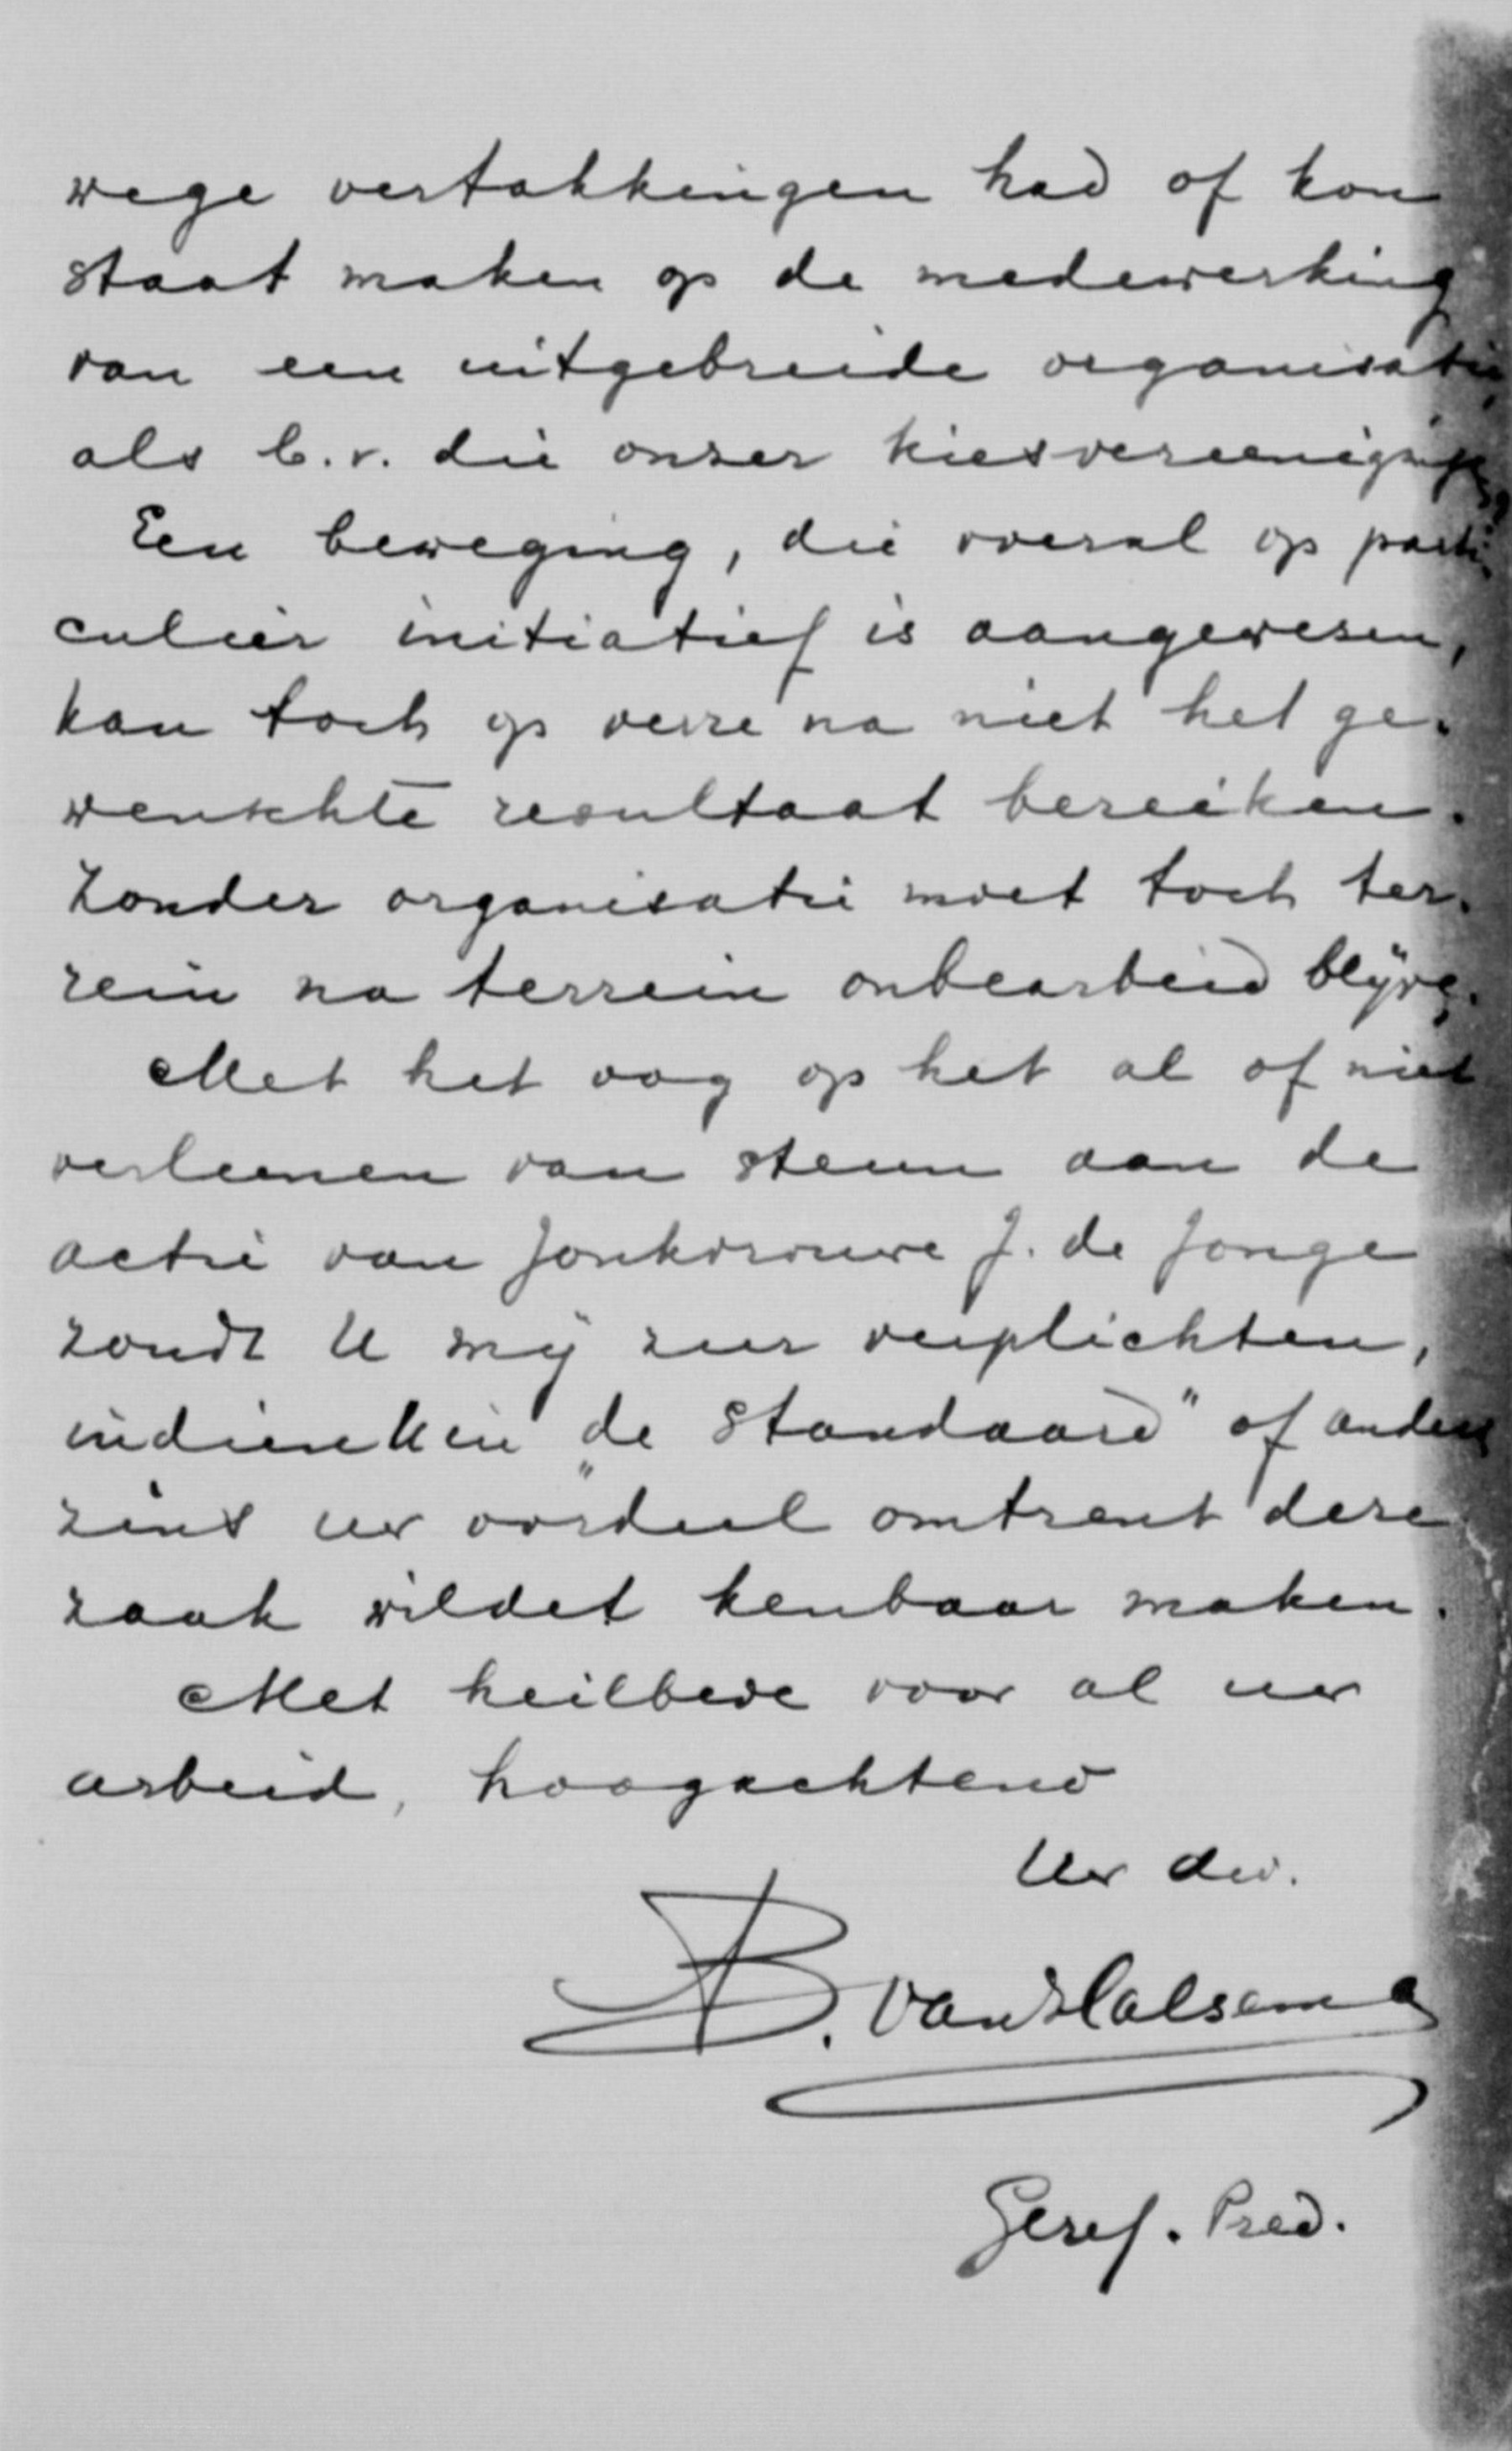 wege vertakkingen had of kon
staat maken op de medewerking
van een uitgebreide organisatie,
als b.v. die onzer kiesvereenigingen.
Een beweging, die overal op parti-
culier initiatief is aangewezen,
kan toch op verre na niet het ge-
wenschte resultaat bereiken.
Zonder organisatie moet toch ter-
rein na terrein onbearbeid blijve.
Met het oog op het al of niet
verleenen van steun aan de
actie van Jonkvrouwe J. de Jonge
zoudt U mij zeer verplichten,
indien U in „de Standaard" of anders
zins uw oordeel omtrent deze
zaak wildet kenbaar maken.
Met heilbede voor al uw
arbeid, hoogachtend
Uw dw.
B. van Halsema
Geref. Pred.